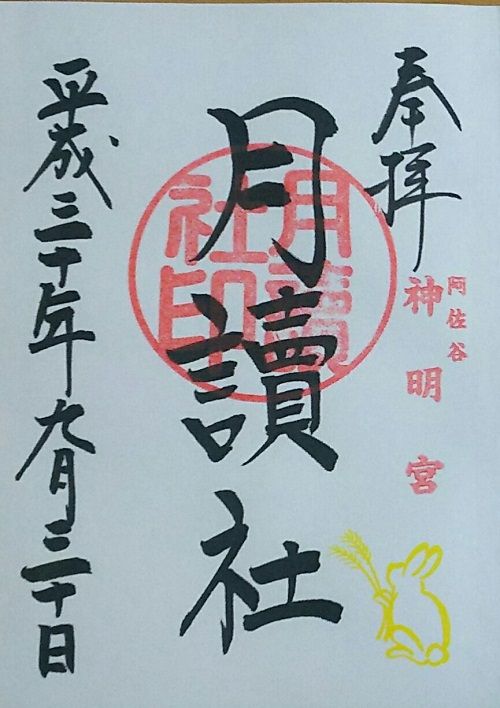 奉拝
阿佐谷
神明宮
月讀社
月讀
社印
平成三十年九月三十日